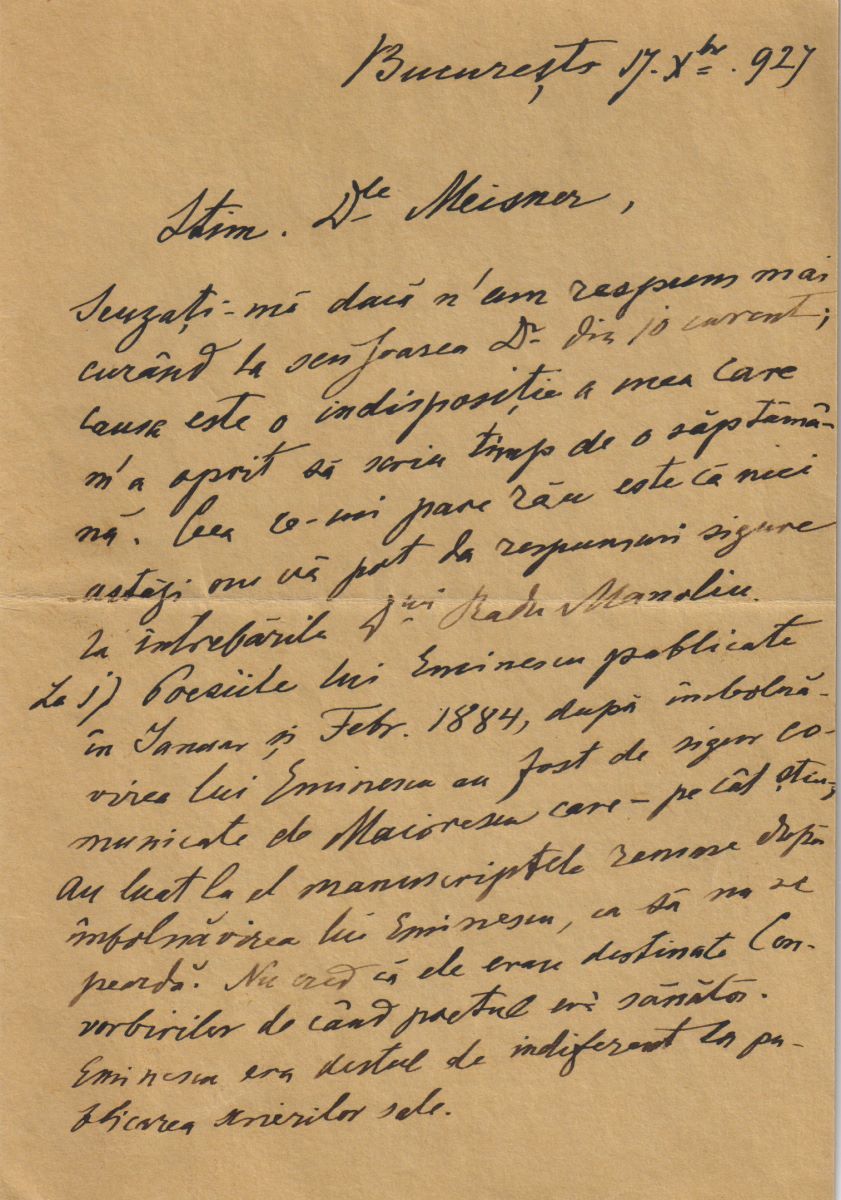 București 17. Xbr. 927
Stim. Dle Meisner,
Scuzați-mă dacă n'am respuns mai
curând la scrisoarea Dr din 10 curent;
causa este o indisposiție a mea care
m'a oprit să scriu timp de o săptămâ-
nă. Ceea ce-mi pare rău este că nici
astăzi nu vă pot da respunsuri sigure
la întrebările Dlui Radu Manoliu.
La 1) Poesiile lui Eminescu publicate
în Ianuar și Febr. 1884, după îmbolnă-
virea lui Eminescu au fost de sigur co-
municate de Maiorescu care - pe cât știu,
au luat la el manuscriptele remase după
îmbolnăvirea lui Eminescu, ca să nu se
peardă. Nu cred că ele erau destinate Con-
vorbirilor de când poetul era sănătos.
Eminescu era destul de indiferent la pu-
blicarea scrierilor sale.